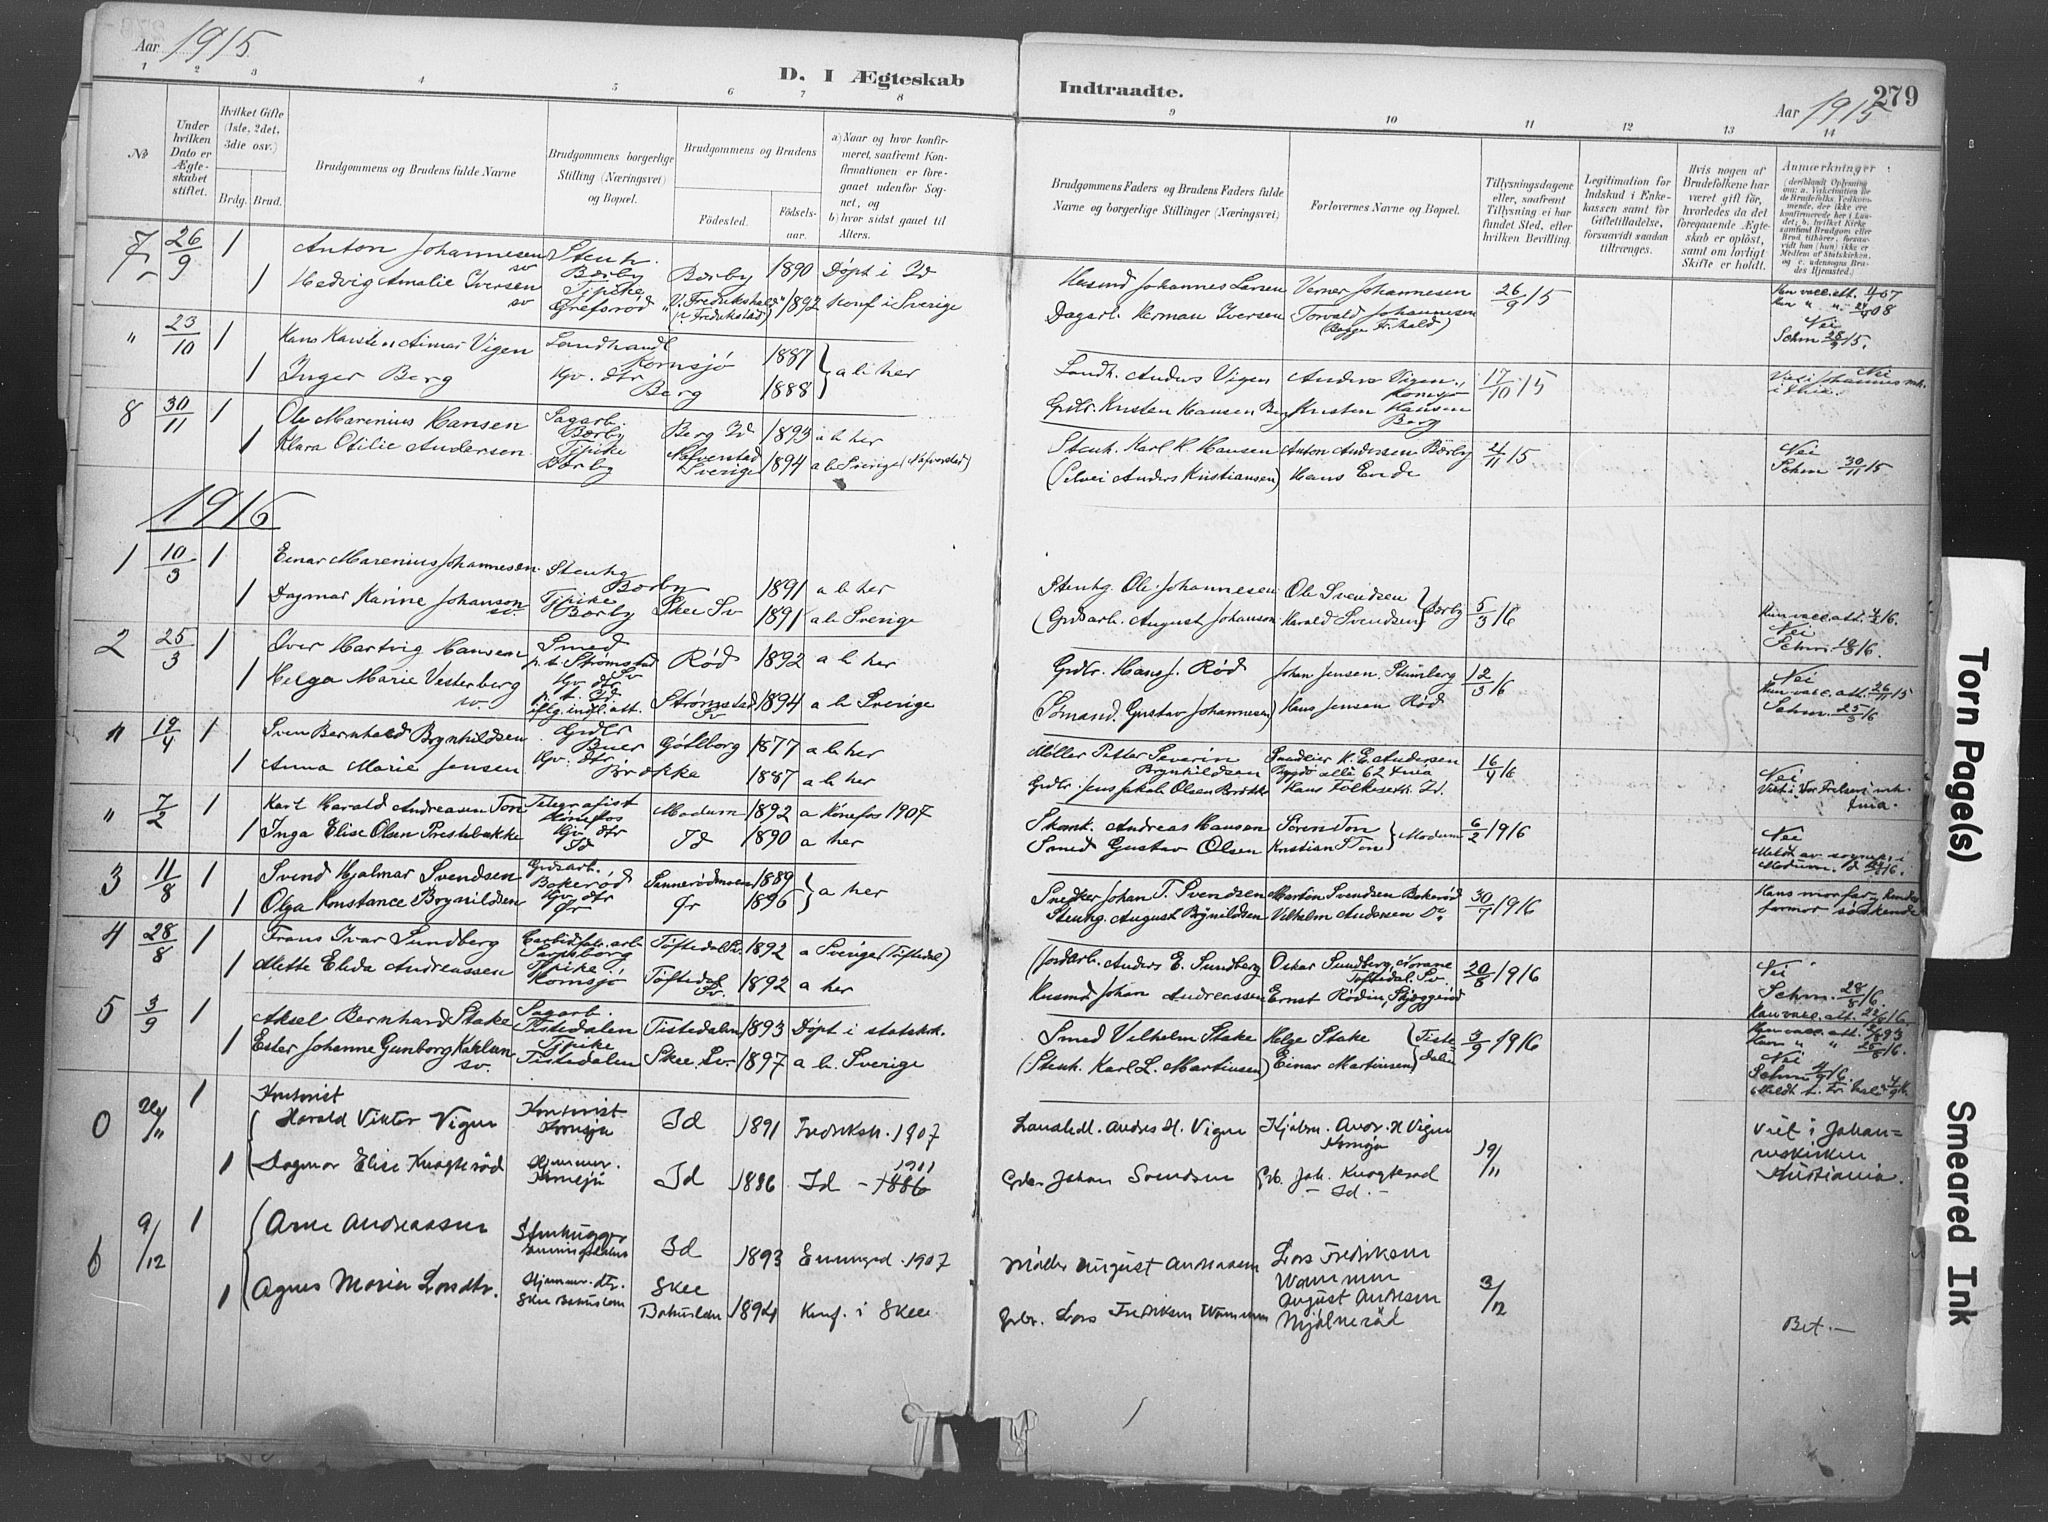 Aar 1915
D. I Ægteskab
1 2 3 4 5 6 7 8
No
Under hvilken Dato er Ægteskabet stiftet.
Hvilket Gifte (1ste, 2det, 3die osv.)
Brdg. Brud.
Brudgommens og Brudens fulde Navne
Brudgommens borgerlige Stilling (Næringsvei) og Bopæl.
Brudgommens og Brudens
Fødested. Fødselsaar.
a) Naar og hvor konfirmeret, saafremt Konfirmationen er foregaaet udenfor Sognet, og
b) hvor sidst gaaet til Alters.
7 26/9 1 Anton Johannesen sv Stenh. Børby Børby 1890 Døpt i Id
1 Hedvig Amalie Iversen sv Tjpike Grefsrød V. Fredrikshald (v. Fredrikstad) 1892 Konf i Sverige
" 23/10 1 Hans Karsten Aimar Vigen Landhandl Kornsjø 1887 a b her
1 Inger Berg Gv. dtr Berg 1888
8 30/11 1 Ole Marenius Hansen Sagarb. Børby Berg Id 1893 a b her
1 Klara Otilie Andersen Tjpike Børby Nafverstad Sverige 1894 a b Sverige (Nafverstad)
1916
1 10/3 1 Einar Marenius Johannesen Stenhg Børby 1891 a b her
1 Dagmar Karine Johanson sv. Tjpike Børby Skee Sv 1891 a b Sverige
2 25/3 1 Over Hartvig Hansen Smed p.t. Strømstad Sv Rød 1892 a b her
1 Helga Marie Vesterberg sv. Gv dtr p.t. Id iflg. indfl. att. Strømstad Sv 1894 a b Sverige
" 19/4 1 Sven Bernhald Brynhildsen Grdbr Buer Gøtlborg 1877 a b her
1 Anna Marie Jensen Gv. dtr Brække 1887 a b her
" 7/2 1 Karl Harald Andreasen Ton Telegrafist Hønefos Modum 1892 a Hønefos 1907
1 Inga Elise Olsen Prestebakke Gv dtr Id Id 1890 a her
3 11/8 1 Svend Hjalmar Svendsen Grdsarb. Bokerød Sannerødmoen 1889 a her
1 Olga Konstance Brynildsen Gv dtr Ør Ør 1896
4 28/8 1 Frans Ivar Sundberg Carbidfab. arb Sarpsborg Tøftedal Sv. 1892 a Sverige (Tøftedal)
1 Mette Elida Andreassen Tjpike Kornsjø Tøftedal Sv. 1892 a her
5 3/9 1 Aksel Bernhard Stake Sagarb. Tistedalen Tistedalen 1893 Døpt i statskrk.
1 Ester Johanne Gunborg Karlson sv. Tjpike Tistedalen Skee. Sv. 1897 a b. Sverige
0 24/11 1 Kontorist Harald Viktor Vigen Kontorist Kornsjøn Id 1891 Fredriksh. 1907
1 Dagmar Elise Kragterød Hjemmev. Kornsjø Id 1886 Id - 1901
6 9/12 1 Arne Andreassen Stenhugger Id 1893 Enningd. 1907
1 Agnes Maria Larsdtr. Hjemmev. dtr. Skee Bohuslen Skee Bohuslen 1894 Konf. i Skee
Indtraadte.
279
Aar 1915
9 10 11 12 13 14
Brudgommens Faders og Brudens Faders fulde Navne og borgerlige Stillinger (Næringsvei)
Forlovernes Navne og Bopæl.
Tillysningsdagene eller, saafremt Tillysning ei har fundet Sted, efter hvilken Bevilling.
Legitimation for Indskud i Enkekassen samt for Giftetilladelse, forsaavidt saadan tiltrænges.
Hvis nogen af Brudefolkene har været gift før, hvorledes da det foregaaende Ægteskab er opløst, samt om lovligt Skifte er holdt.
Anmærkninger
(deriblandt Oplysning om: a. Vakcination for de Brudefolks Vedkommende, der ikke ere konfirmerede her i Landet; b. hvilket Kirkesamfund Brudgom eller Brud tilhører, forsaavidt han (hun) ikke er Medlem af Statskirken, og c. udensogns Brudes Hjemsted.)
Husmd Johannes Larsen Verner Johannesen 26/9 15
Dagarb. Herman Iversen Torvald Johannesen (Begge Fr.hald)
Nei
Landh. Anders Vigen Anders Vigen, Kornsjø 17/10 15 Nei Viet i Johannes krk. i Xnia.
Grdbr. Kristen Hansen Berg Kristen Hansen Berg
Stenh. Karl R. Hansen Anton Andersen Børby 21/11 15 Nei
(Selvei Anders Kristiansen) Hans Ende Schm 30/11 15
Stenhg. Ole Johannesen Ole Svendsen Børby 5/3 16
(Grdsarb. August Johanson Harald Svendsen
Nei
Grdbr. Hans J. Rød Johan Jensen Stumberg 12/3 16 Nei
(Sømand. Gustav Johannesen) Hans Jensen Rød Schm. 25/3 16
Møller Petter Severin Brynhildsen Snedker K. E. Andersen Bygdø alle 62 Xnia 16/4 16 Nei
Grdbr. Jens Jakob Olsen Brække Hans Folkeseth Id. Viet i Vor Frelsers krk. Xnia
Skomk. Andreas Hansen Søren Ton Modum 6/2 1916 Nei
Smed Gustav Olsen Kristian Ton
Snedker Johan T. Svendsen Martin Svendsen Bokerød 30/7 1916 Hans morfar og hendes
Stenhg. August Brynildsen Vilhelm Andersen Do farmor søskende
(Jordarb. Anders E. Sundberg Oskar Sundberg, Norane Tøftedal. Sv. 20/8 1916 Nei
Husmd Johan Andreassen Ernst Rødin, Skjeggerød Schm. 28/8 16.
Smed Vilhelm Stake Helge Stake Tistedalen 3/9 1916
(Stenh. Karl L. Martinsen) Einar Martinsen Nei
Landhdl. Andres H. Vigen Kjøbm. Andr. H Vigen Kornsjø 19/11 Viet i Johanneskirken Kristiania.
Grdbr Johan Svendsen Grb. Joh. Kragterød - Id. -
Møller August Andreasen Lars Fredriksen Wammen 3/12
Grbr. Lars Fredriksen Wammen August Andresen Mjølnerød Bet. -
Torn Page(s)
Smeared Ink